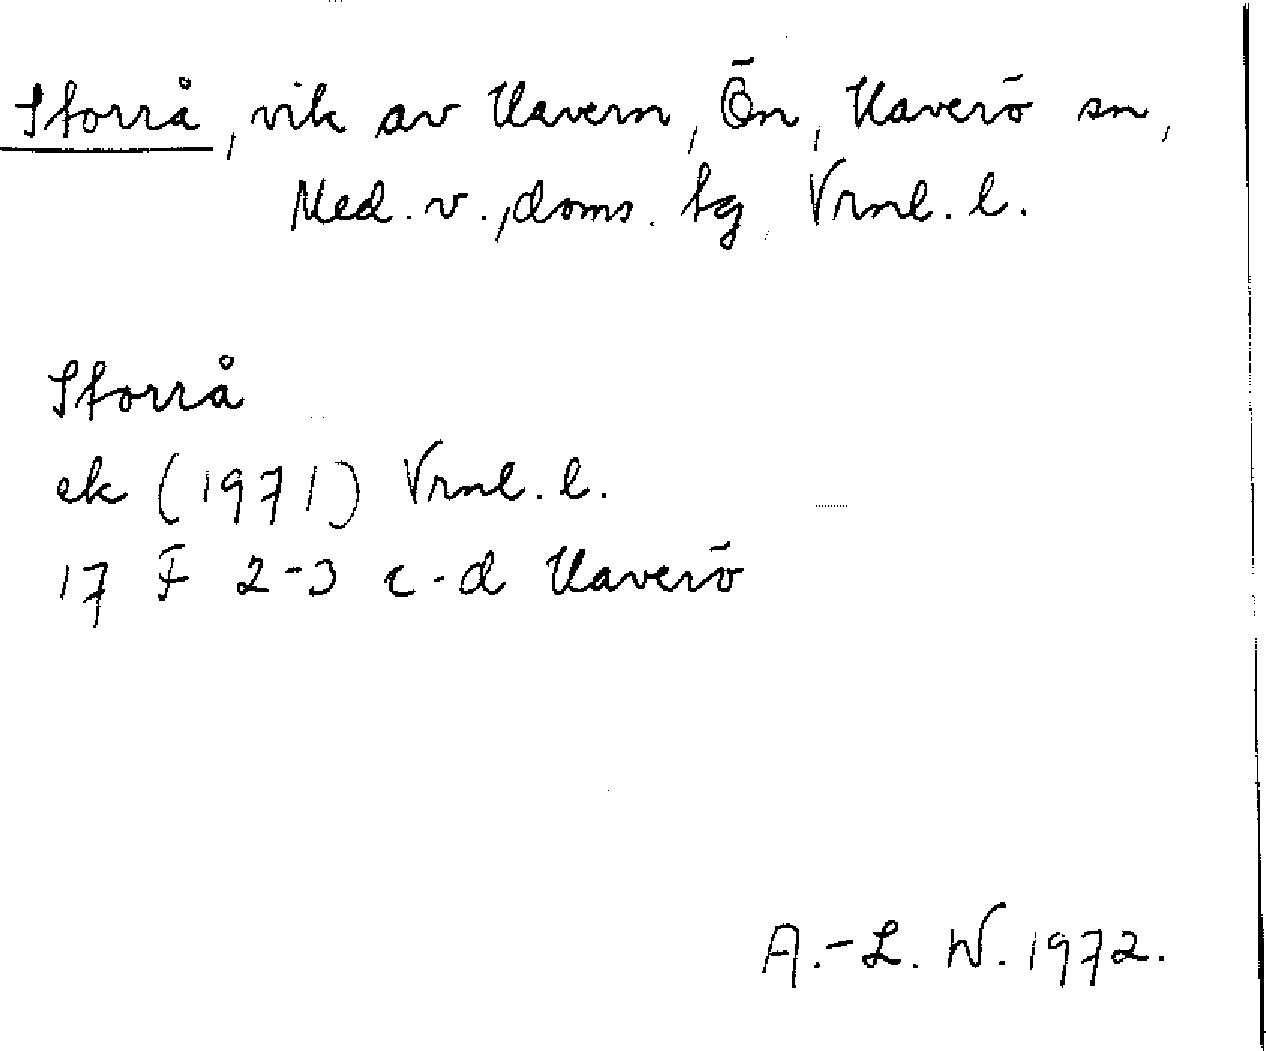 Storrå, vik av Havern, Ön, Haverö sn,
Med. v., doms. tg, Vrnl. l.
Storrå
ek (1971) Vrnl. l.
17 F 2-3 c-d Haverö
A.-L. W. 1972.